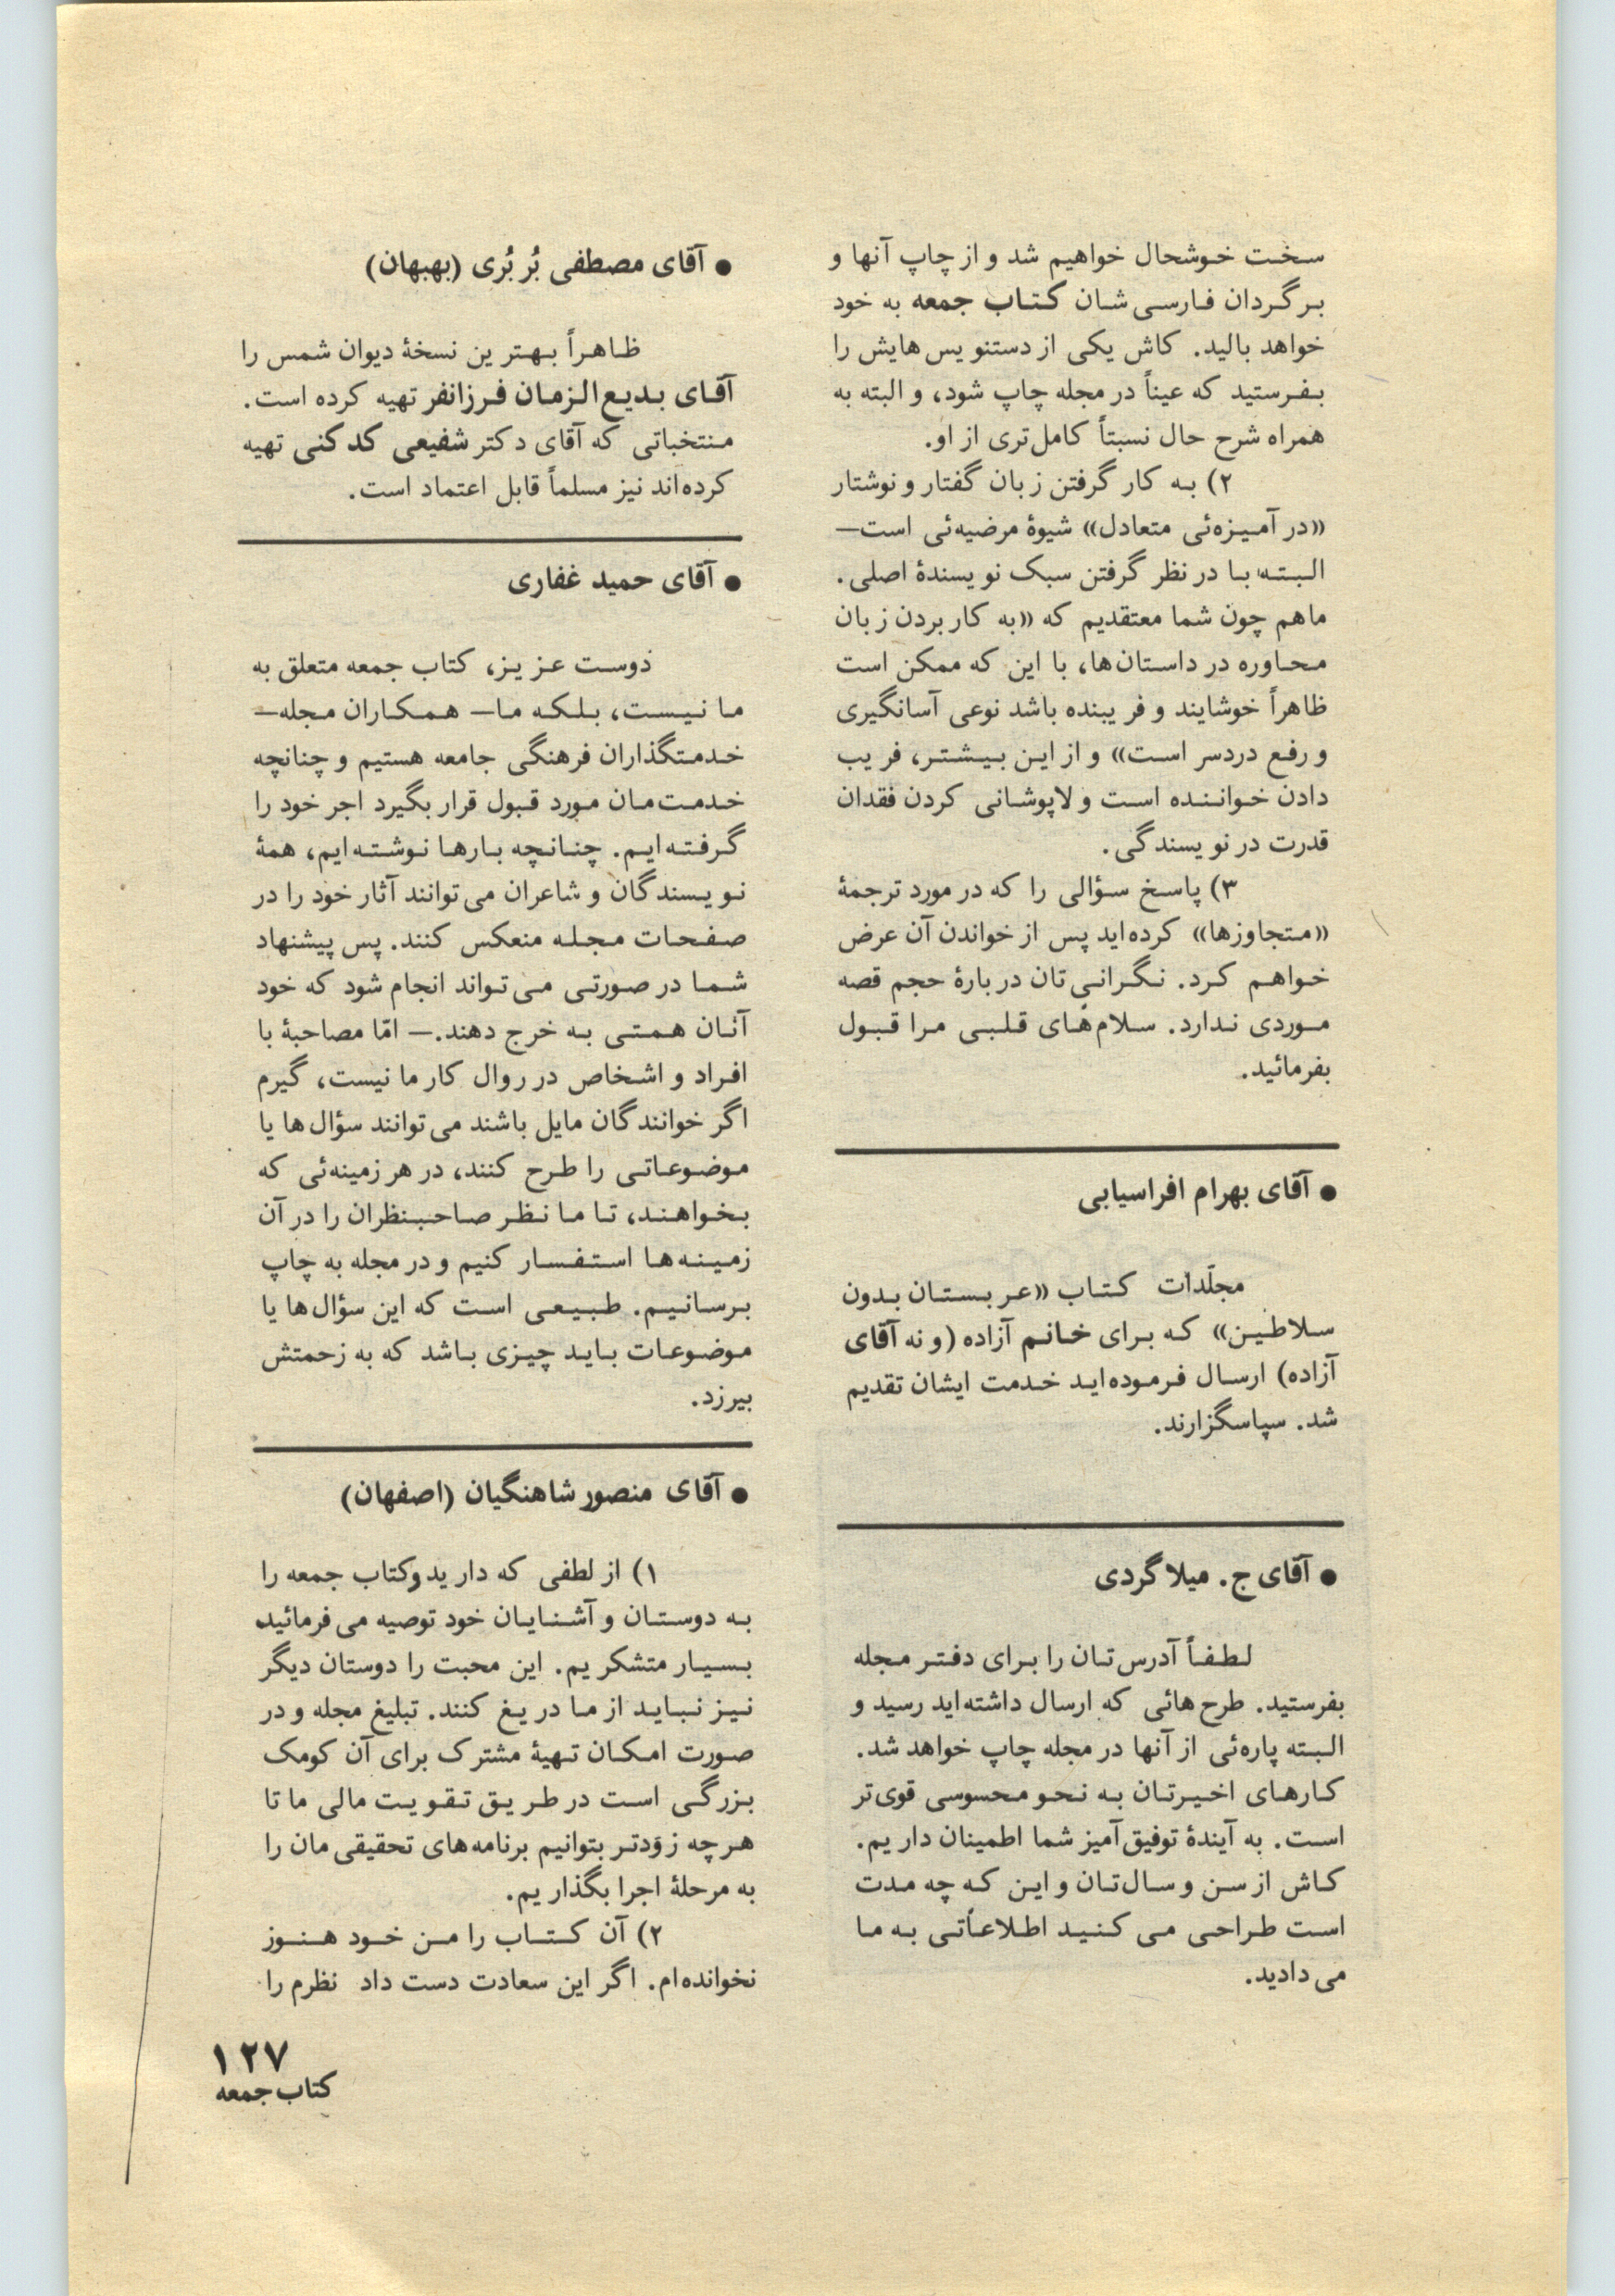 سخت خوشحال خواهیم شد و از چاپ آنها و
برگردان فارسی‌شان کتاب جمعه به خود
خواهد بالید. کاش یکی از دستنویس‌هایش را
بفرستید که عیناً در مجله چاپ شود، و البته به
همراه شرح حال نسبتاً کامل‌تری از او.
۲) به کار گرفتن زبان گفتار و نوشتار
«در آمیزه‌ئی متعادل» شیوهٔ مرضیه‌ئی است—
البته با در نظر گرفتن سبک نویسندهٔ اصلی.
ماهم چون شما معتقدیم که «به کار بردن زبان
محاوره در داستان‌ها، با این که ممکن است
ظاهراً خوشایند و فریبنده باشد نوعی آسانگیری
و رفع دردسر است» و از این بیشتر، فریب
دادن خواننده است و لاپوشانی کردن فقدان
قدرت در نویسندگی.
۳) پاسخ سؤالی را که در مورد ترجمهٔ
«متجاوزها» کرده‌اید پس از خواندن آن عرض
خواهم کرد. نگرانی‌تان دربارهٔ حجم قصه
موردی ندارد. سلام‌های قلبی مرا قبول
بفرمائید.
● آقای بهرام افراسیابی
مجلّدات کتاب «عربستان بدون
سلاطین» که برای خانم آزاده (و نه آقای
آزاده) ارسال فرموده‌اید خدمت ایشان تقدیم
شد. سپاسگزارند.
● آقای ج. میلاگردی
لطفاً آدرس‌تان را برای دفتر مجله
بفرستید. طرح‌هائی که ارسال داشته‌اید رسید و
البته پاره‌ئی از آنها در مجله چاپ خواهد شد.
کارهای اخیرتان به نحو محسوسی قوی‌تر
است. به آیندهٔ توفیق‌آمیز شما اطمینان داریم.
کاش از سن و سال‌تان و این که چه مدت
است طراحی می‌کنید اطلاعاتی به ما
می‌دادید.
● آقای مصطفی بُربُری (بهبهان)
ظاهراً بهترین نسخهٔ دیوان شمس را
آقای بدیع‌الزمان فرزانفر تهیه کرده است.
منتخباتی که آقای دکتر شفیعی کدکنی تهیه
کرده‌اند نیز مسلماً قابل اعتماد است.
● آقای حمید غفاری
دوست عزیز، کتاب جمعه متعلق به
ما نیست، بلکه ما— همکاران مجله—
خدمتگذاران فرهنگی جامعه هستیم و چنانچه
خدمت‌مان مورد قبول قرار بگیرد اجر خود را
گرفته‌ایم. چنانچه بارها نوشته‌ایم، همهٔ
نویسندگان و شاعران می‌توانند آثار خود را در
صفحات مجله منعکس کنند. پس پیشنهاد
شما در صورتی می‌تواند انجام شود که خود
آنان همتی به خرج دهند.— امّا مصاحبهٔ با
افراد و اشخاص در روال کار ما نیست، گیرم
اگر خوانندگان مایل باشند می‌توانند سؤال‌ها یا
موضوعاتی را طرح کنند، در هر زمینه‌ئی که
بخواهند، تا ما نظر صاحبنظران را در آن
زمینه‌ها استفسار کنیم و در مجله به چاپ
برسانیم. طبیعی است که این سؤال‌ها یا
موضوعات باید چیزی باشد که به زحمتش
بیرزد.
● آقای منصور شاهنگیان (اصفهان)
۱) از لطفی که دارید و کتاب جمعه را
به دوستان و آشنایان خود توصیه می‌فرمائید
بسیار متشکریم. این محبت را دوستان دیگر
نیز نباید از ما دریغ کنند. تبلیغ مجله و در
صورت امکان تهیهٔ مشترک برای آن کومک
بزرگی است در طریق تقویت مالی ما تا
هرچه زودتر بتوانیم برنامه‌های تحقیقی‌مان را
به مرحلهٔ اجرا بگذاریم.
۲) آن کتاب را من خود هنوز
نخوانده‌ام. اگر این سعادت دست داد نظرم را
۱۲۷
کتاب جمعه